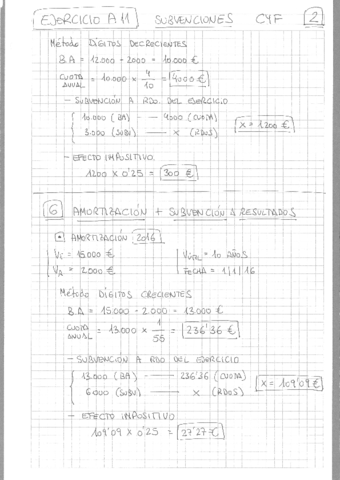 EJERCICIO A11 SUBVENCIONES CYF 2
Método DÍGITOS DECRECIENTES
B.A = 12.000 - 2000 = 10.000 €
CUOTA ANUAL = 10.000 x 4/10 = 4000 €
- SUBVENCIÓN A RDO. DEL EJERCICIO
10.000 (BA) — 4000 (CUOTA)
3.000 (SUBV) — x (RDOS)
x = 1200 €
- EFECTO IMPOSITIVO
1200 x 0'25 = 300 €
6 AMORTIZACIÓN + SUBVENCIÓN A RESULTADOS
AMORTIZACIÓN 2016
Vc = 15.000 € Vútil = 10 AÑOS
VR = 2.000 € FECHA = 1/1/16
Método DÍGITOS CRECIENTES
B.A = 15.000 - 2.000 = 13.000 €
CUOTA ANUAL = 13.000 x 1/55 = 236'36 €
- SUBVENCIÓN A RDO DEL EJERCICIO
13.000 (BA) — 236'36 (CUOTA)
6000 (SUBV) — x (RDOS)
x = 109'09 €
- EFECTO IMPOSITIVO
109'09 x 0'25 = 27'27 €